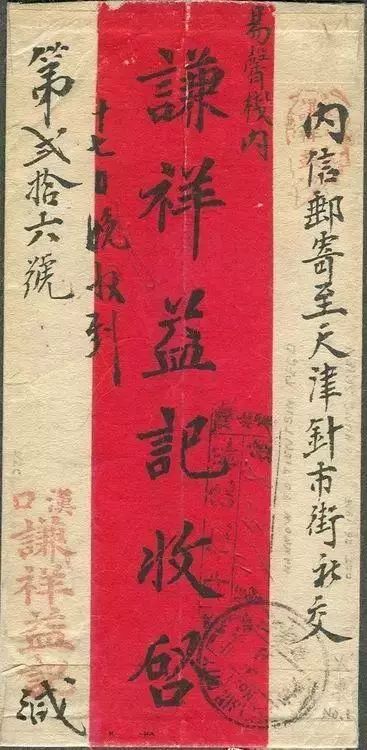 内信郵寄至天津針市街祈交
易馨棧內
謙祥益記收啓
十七日晚收到
第弍拾六號
漢口
謙祥益記
緘
No.1